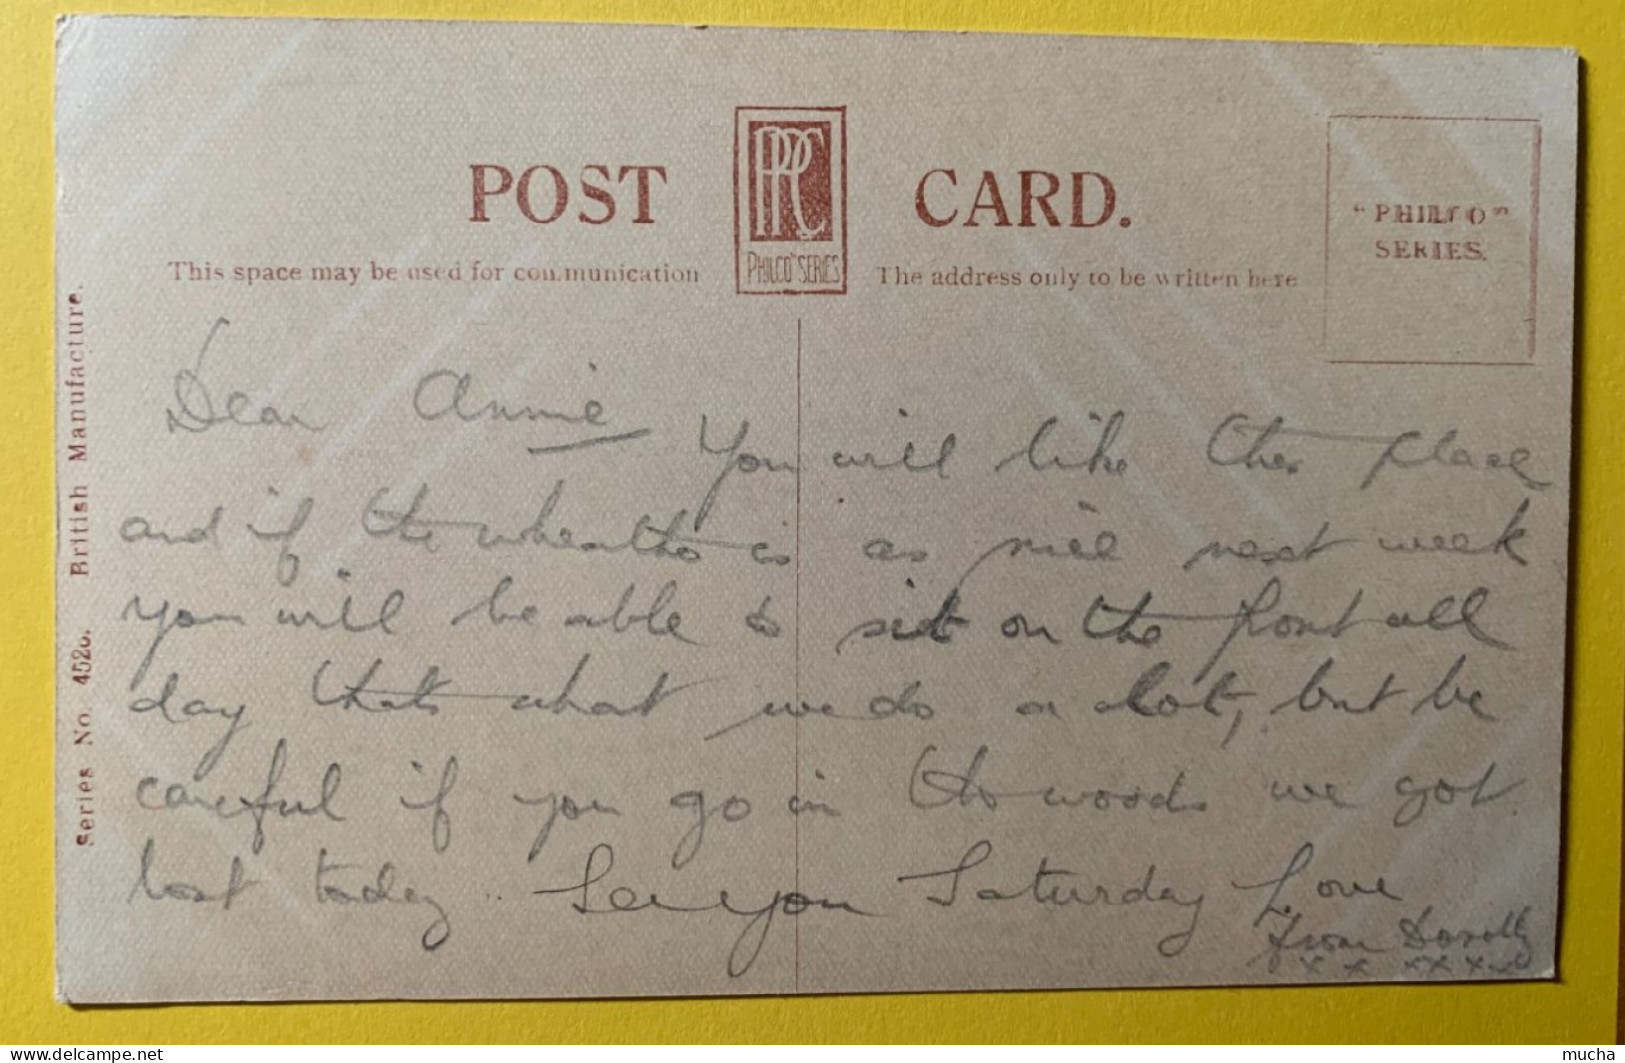 POST CARD.
PPC
"PHILCO" SERIES
"PHILCO"
SERIES.
This space may be used for communication
The address only to be written here
Series No. 4526. British Manufacture.
Dear Annie
You will like the place
and if the wheather is as nice next week
you will be able to sit on the front all
day thats what we do a lot, but be
careful if you go in the woods we got
lost today.. See you Saturday Love
from Dorothy
x x x x x x
delcampe.net
mucha